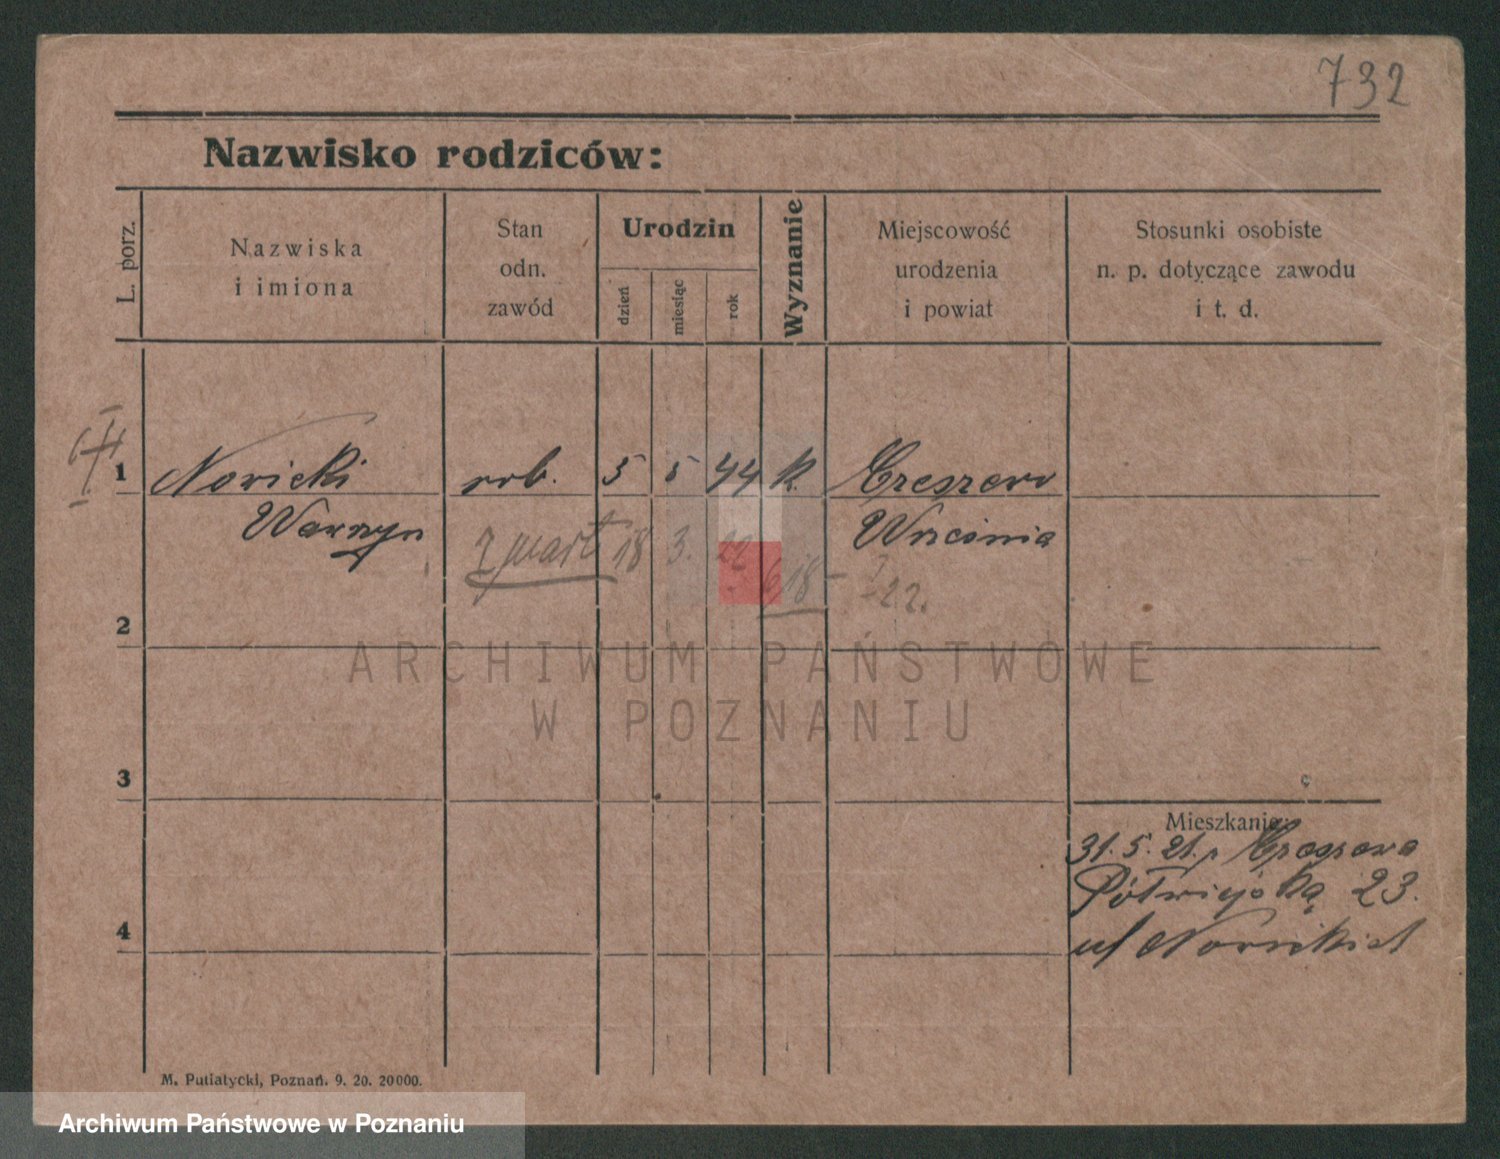 732
Nazwisko rodziców:
L. porz.
Nazwiska
i imiona
Stan
odn.
zawód
Urodzin
dzień
miesiąc
rok
Wyznanie
Miejscowość
urodzenia
i powiat
Stosunki osobiste
n. p. dotyczące zawodu
i t. d.
1 Nowicki rob. 5 5 44 k.
Wawrzyn Września
18 3. 22
618 22.
2
ARCHIWUM PAŃSTWOWE
W POZNANIU
3
Mieszkanie:
31.5.21.
23.
4
M. Putiatycki, Poznań. 9. 20. 20000.
Archiwum Państwowe w Poznaniu